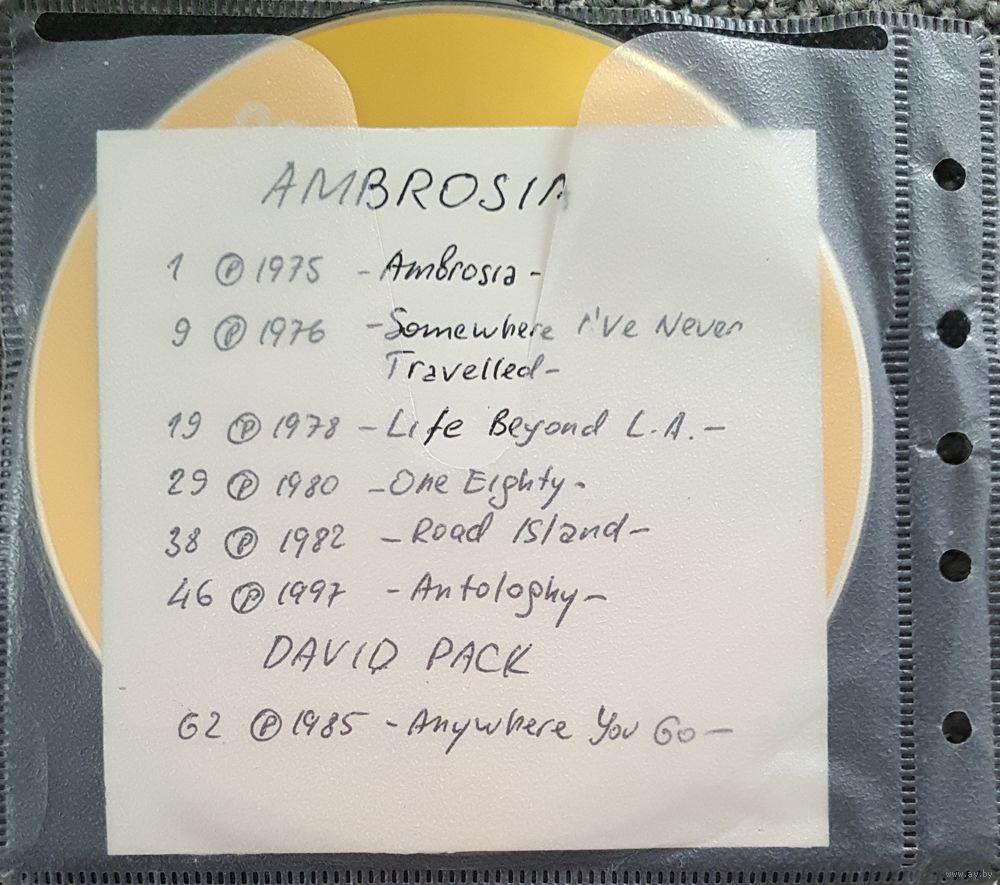 AMBROSIA
1 ℗ 1975 - Ambrosia -
9 ℗ 1976 - Somewhere I've Never
Travelled -
19 ℗ 1978 - Life Beyond L.A. -
29 ℗ 1980 - One Eighty -
38 ℗ 1982 - Road Island -
46 ℗ 1997 - Antologhy -
DAVID PACK
62 ℗ 1985 - Anywhere You Go -
www.ay.by